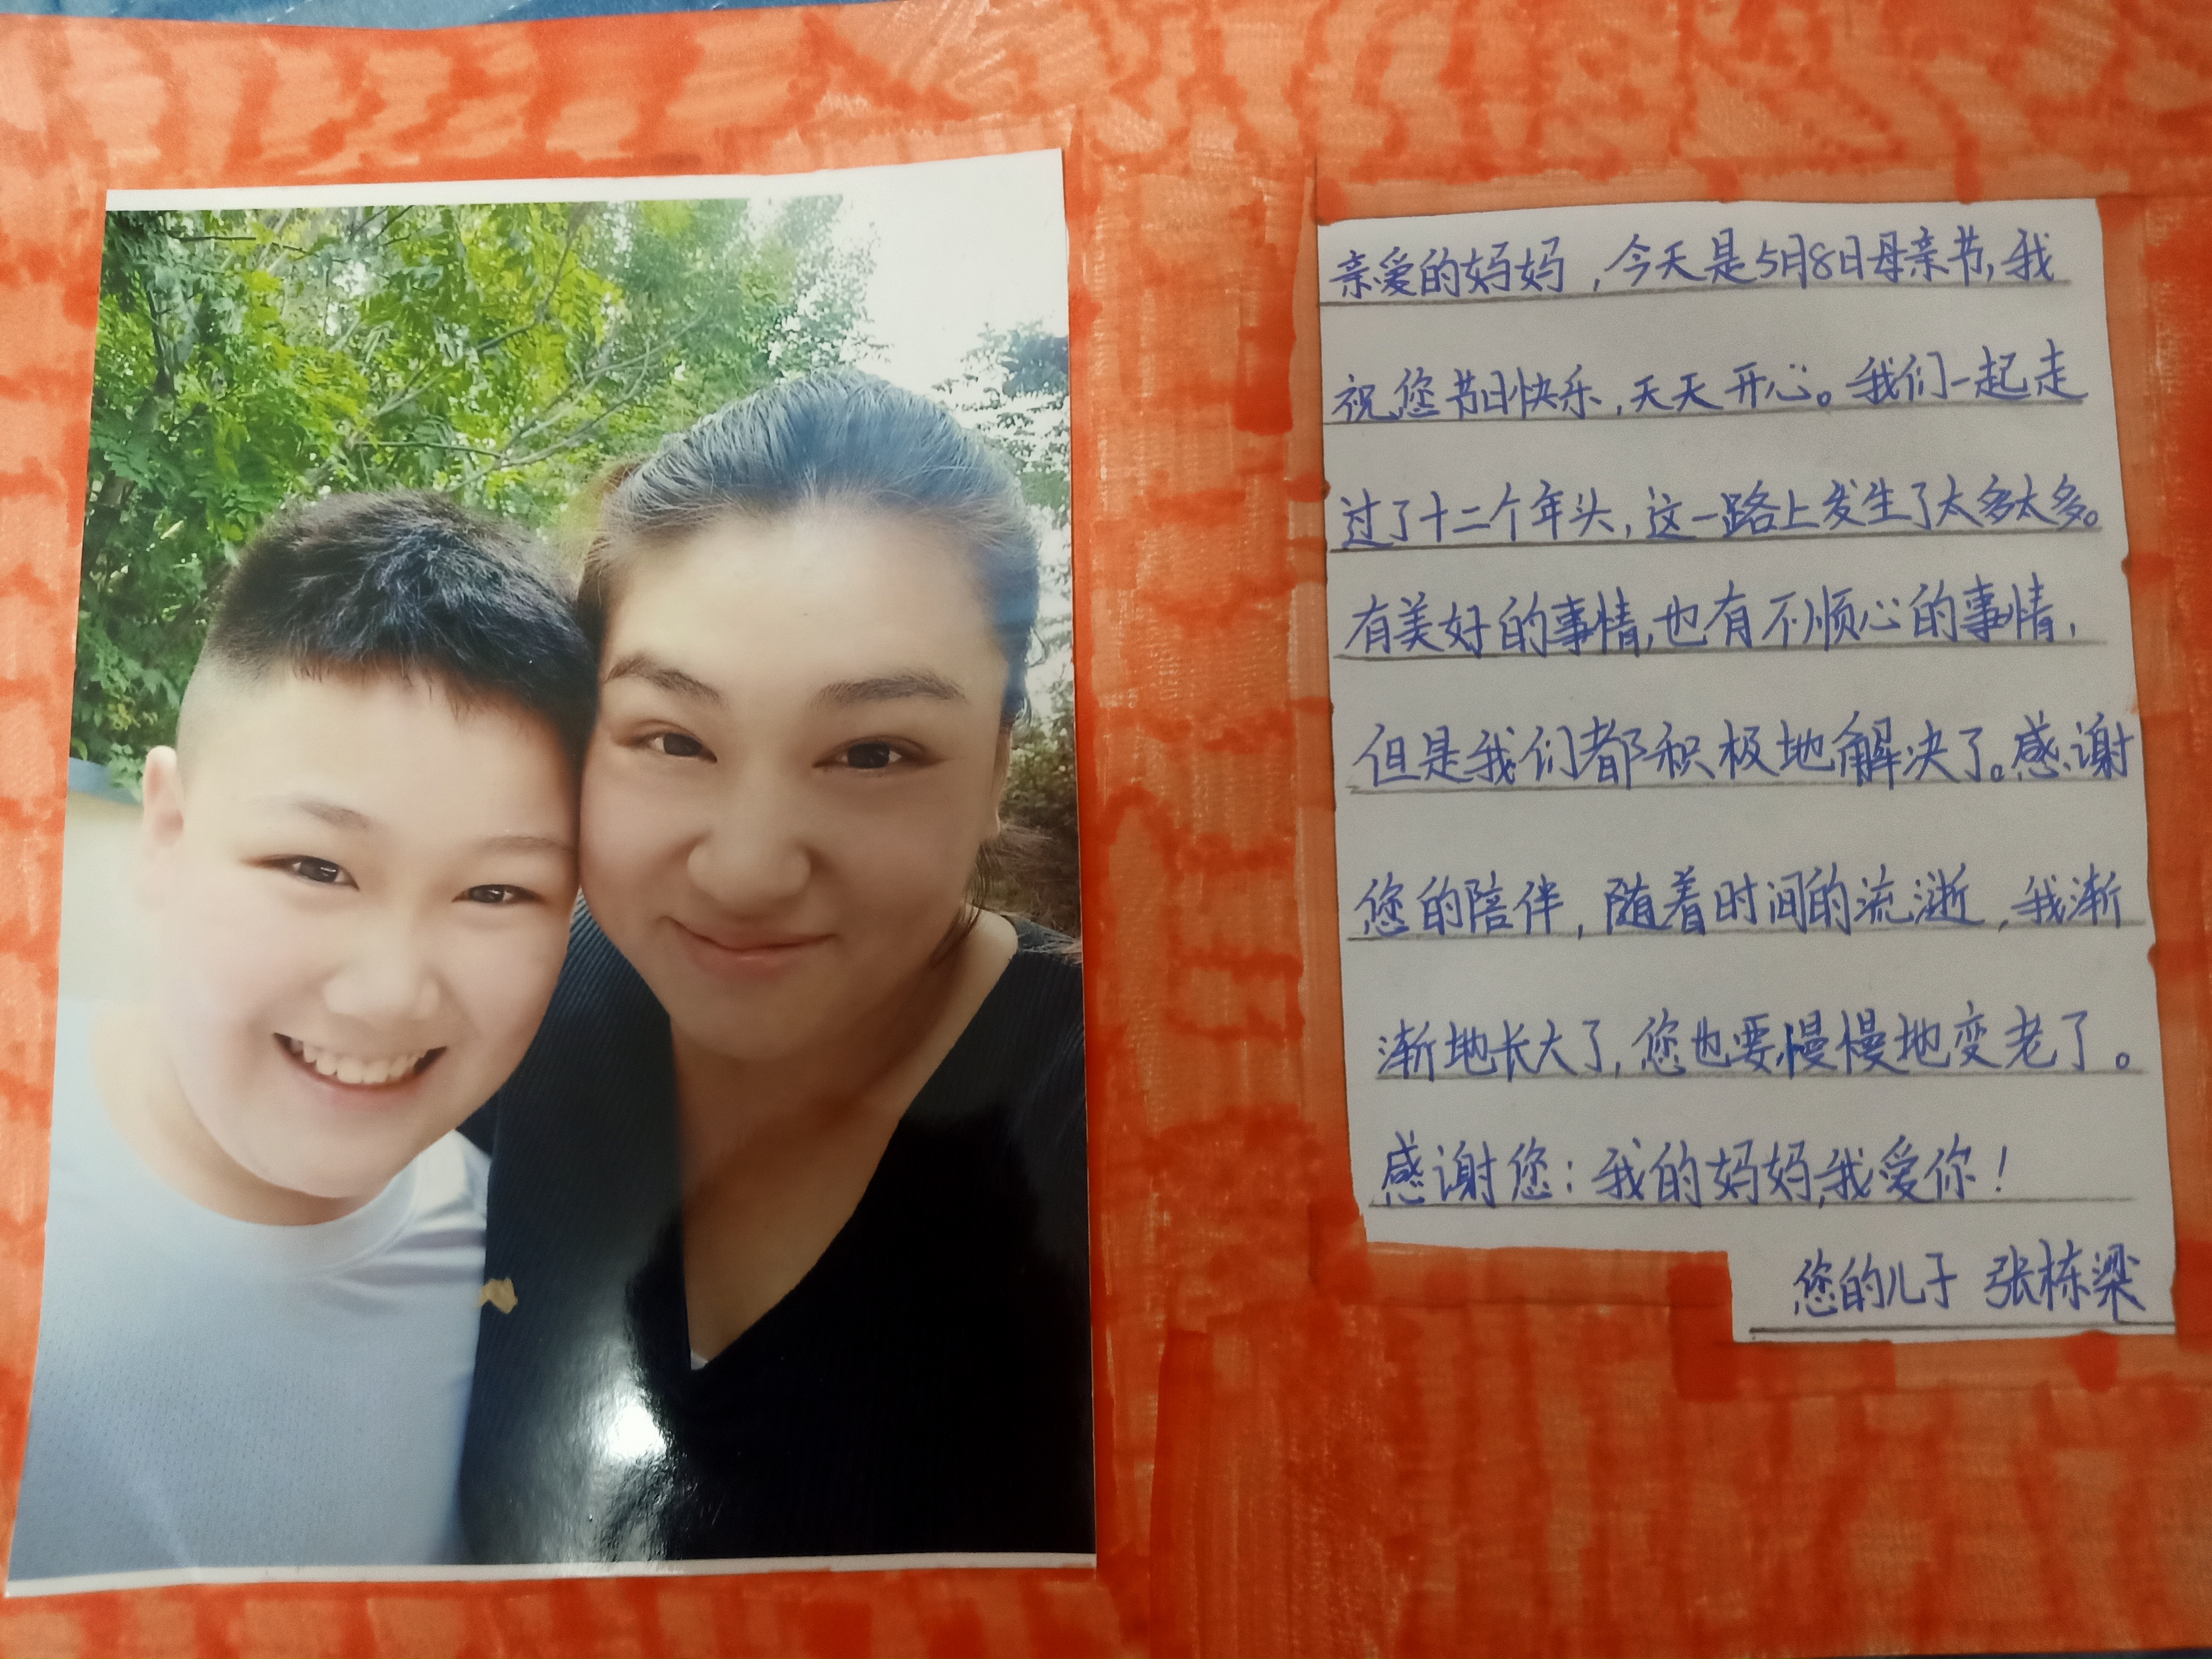 亲爱的妈妈，今天是5月8日母亲节，我
祝您节日快乐，天天开心。我们一起走
过了十二个年头，这一路上发生了太多太多。
有美好的事情，也有不顺心的事情，
但是我们都积极地解决了。感谢
您的陪伴，随着时间的流逝，我渐
渐地长大了，您也要慢慢地变老了。
感谢您：我的妈妈，我爱你！
您的儿子 张栋梁